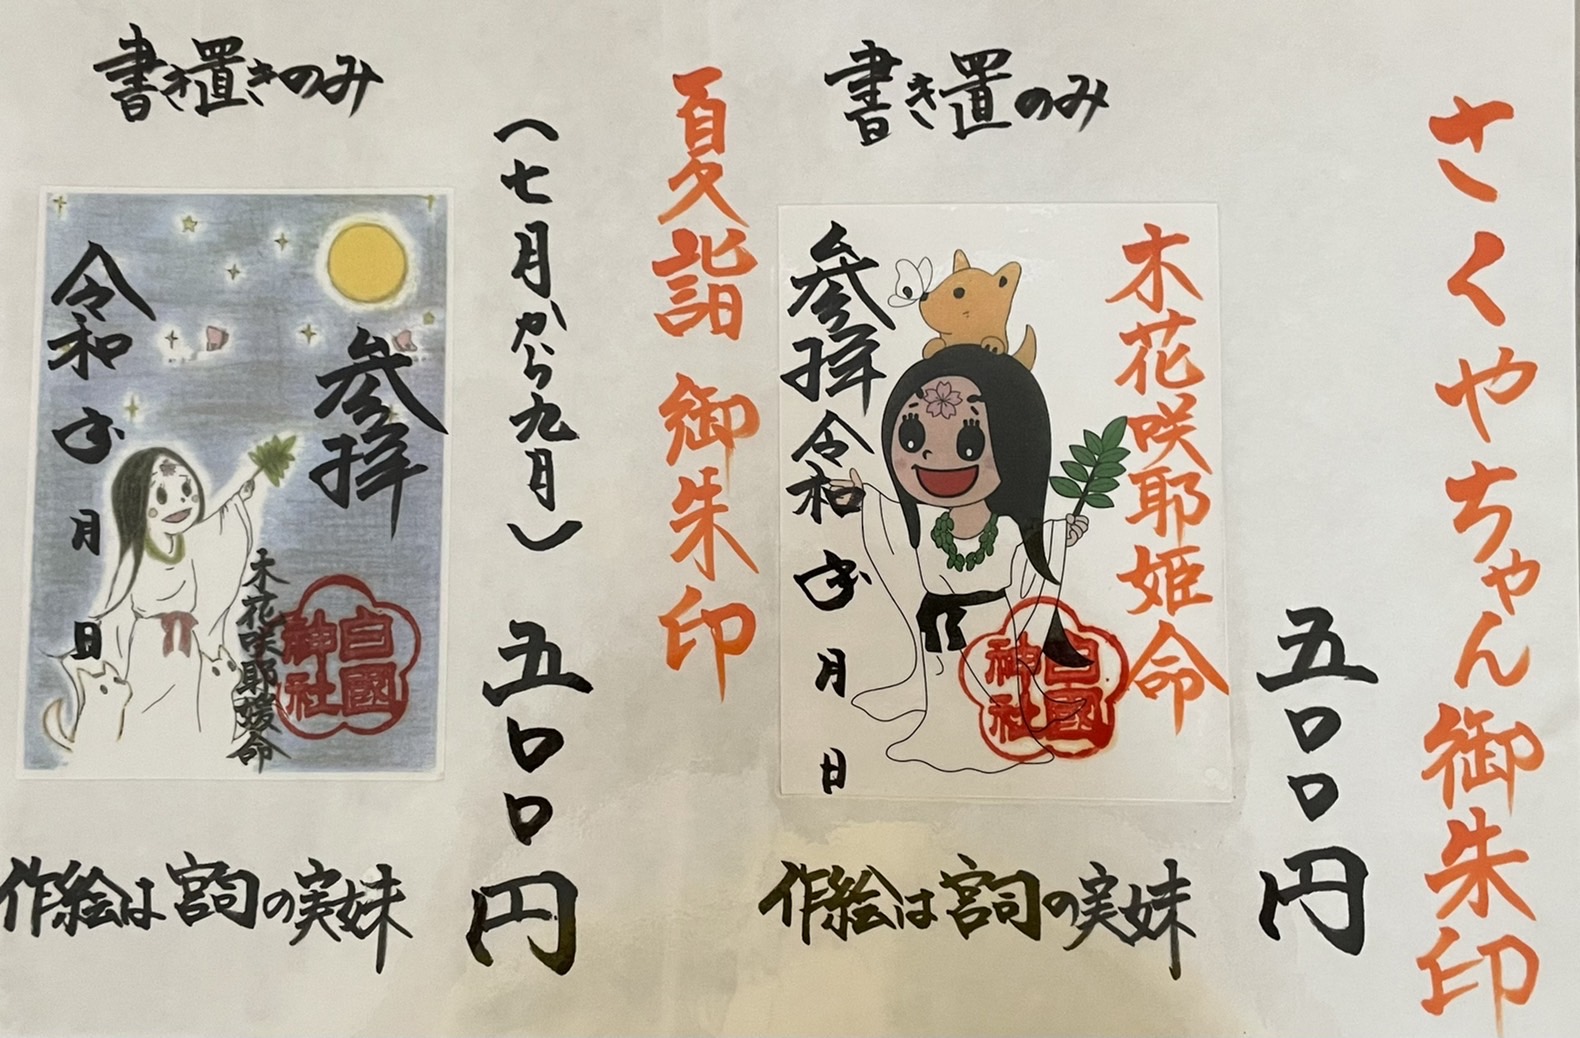 さくやちゃん御朱印
五〇〇円
書き置のみ
木花咲耶姫命
参拝
令和 年 月 日
白國
神社
作絵は宮司の実妹
夏詣御朱印
(七月から九月)
五〇〇円
書き置きのみ
参拝
白國
神社
木花咲耶媛命
令和 年 月 日
作絵は宮司の実妹